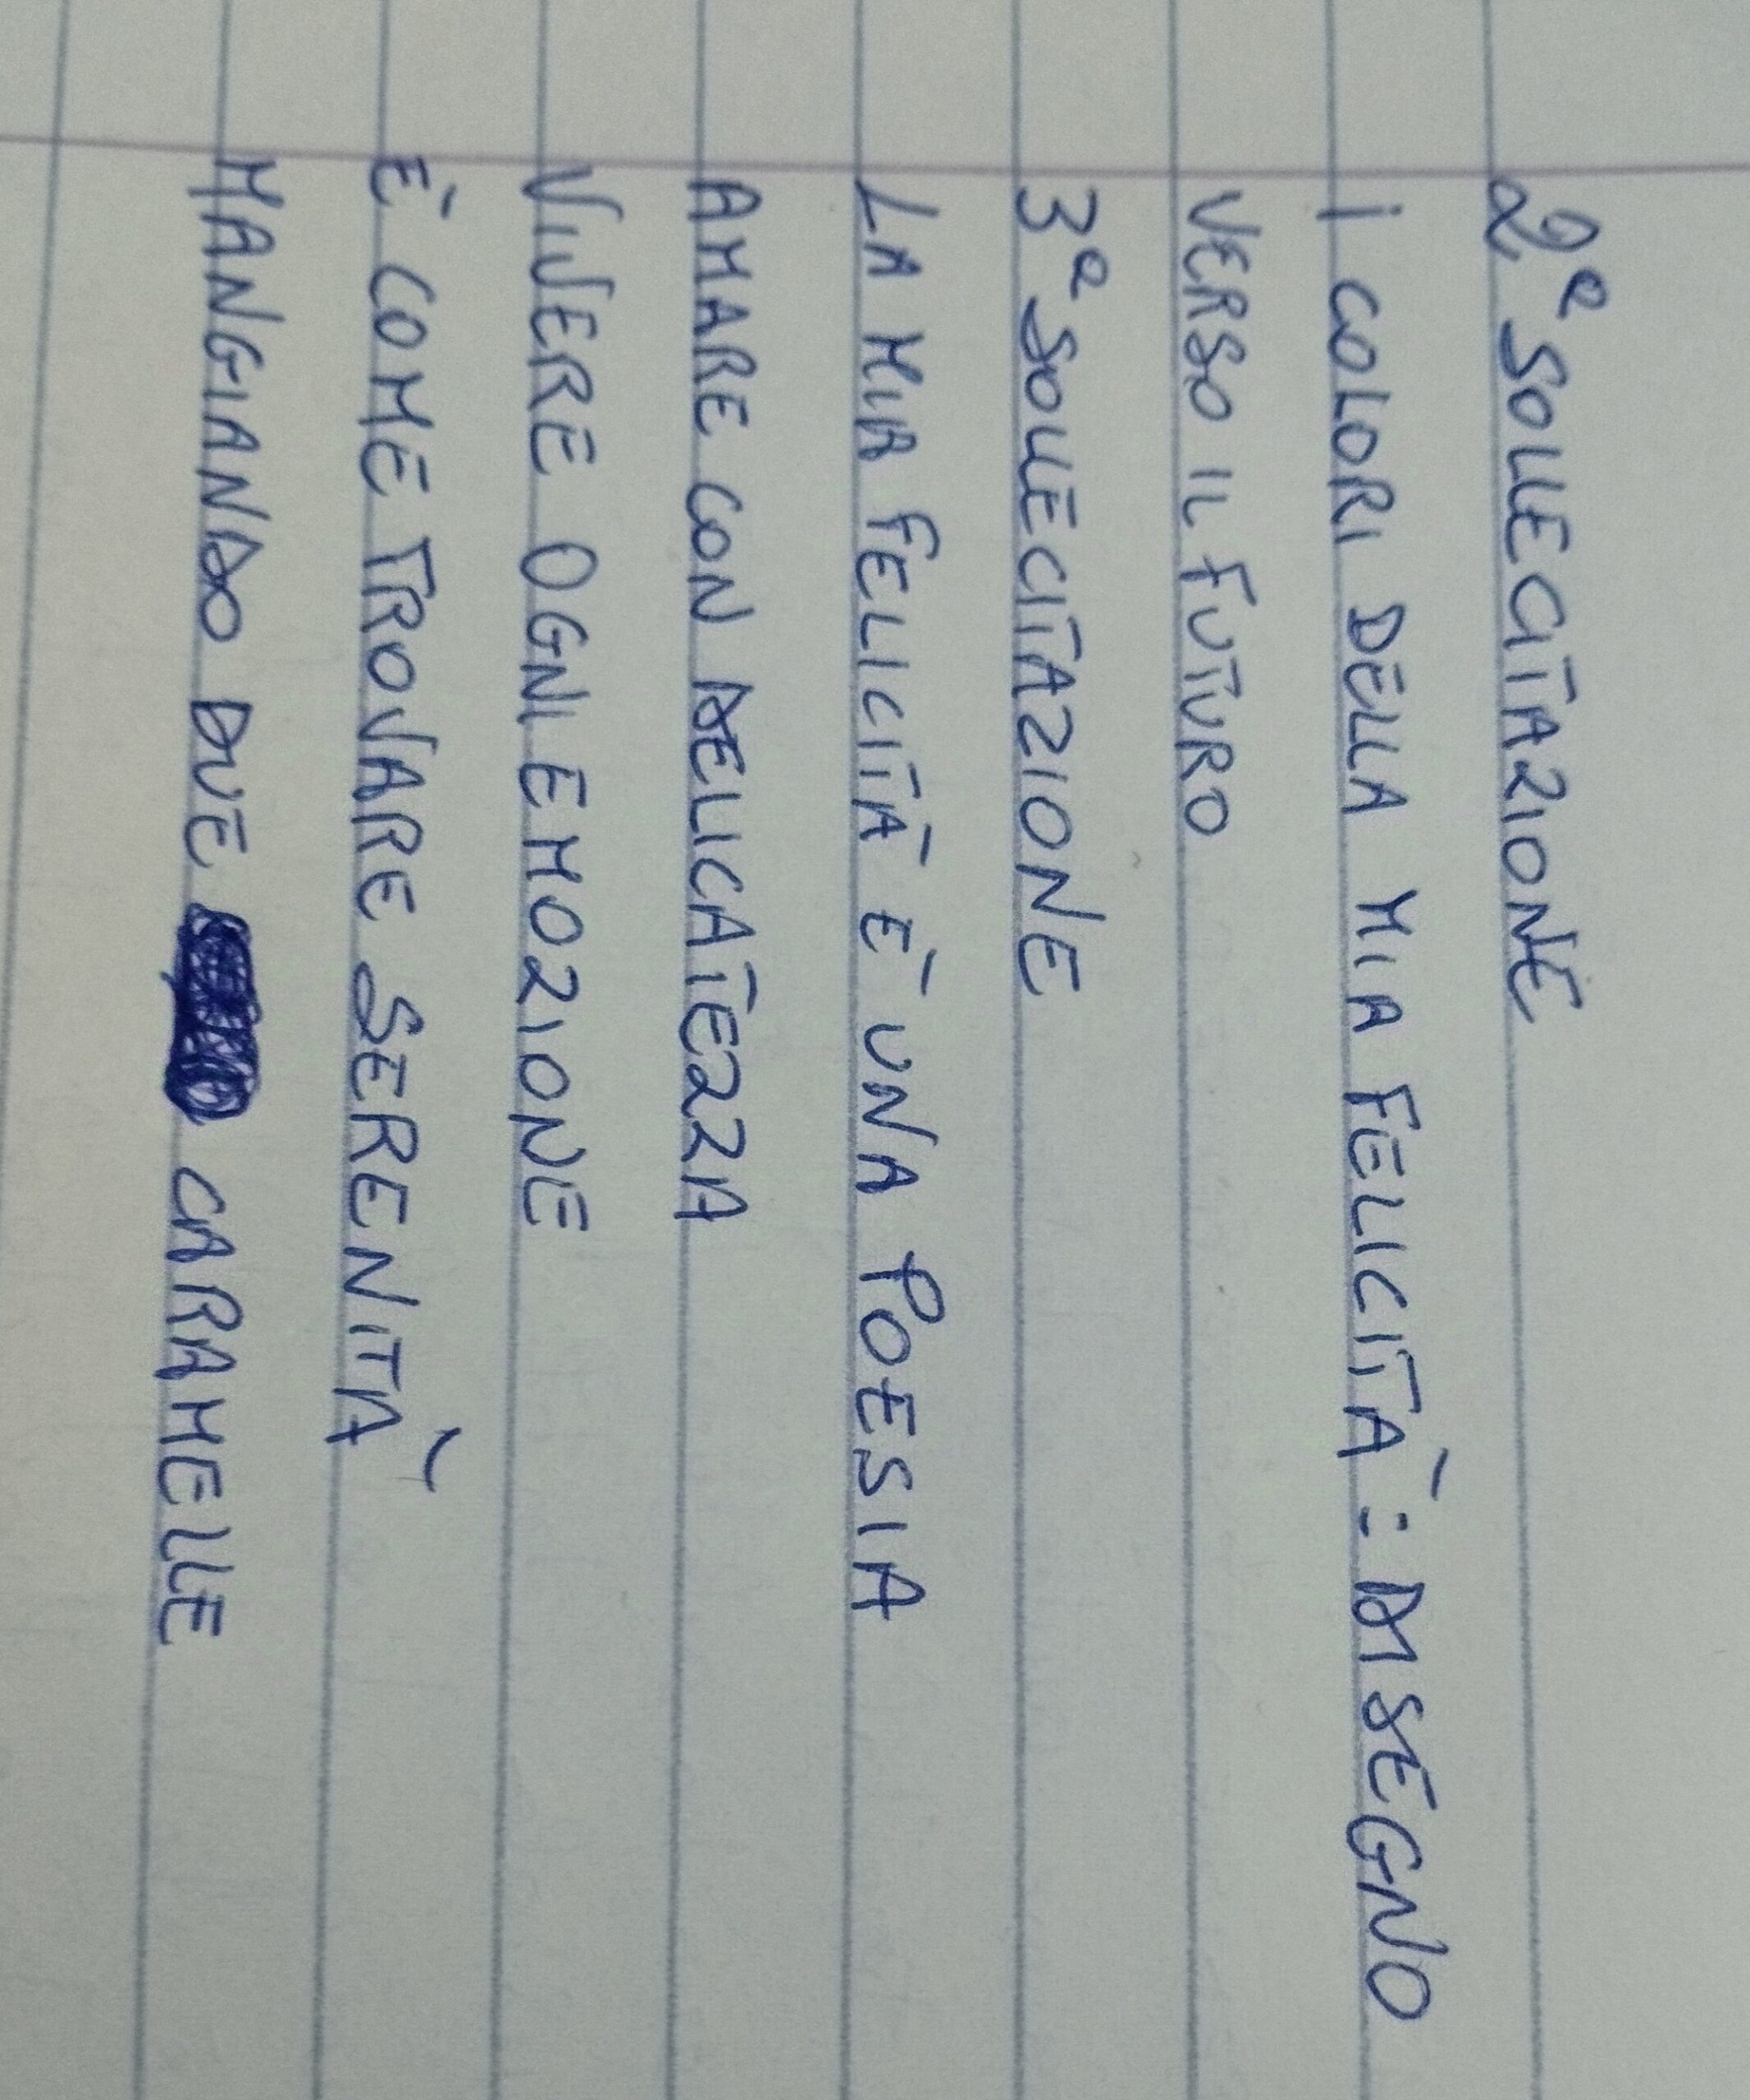 2ª SOLLECITAZIONE
I COLORI DELLA MIA FELICITÀ: DISEGNO
VERSO IL FUTURO
3ª SOLLECITAZIONE
LA MIA FELICITÀ È UNA POESIA
AMARE CON DELICATEZZA
VIVERE OGNI EMOZIONE
È COME TROVARE SERENITÀ
MANGIANDO DUE CARAMELLE